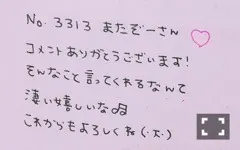 No. 3313 またぞーさん
コメントありがとうございます!
そんなこと言ってくれるなんて
凄い嬉しいな♫
これからもよろしくね(·ㅊ·)